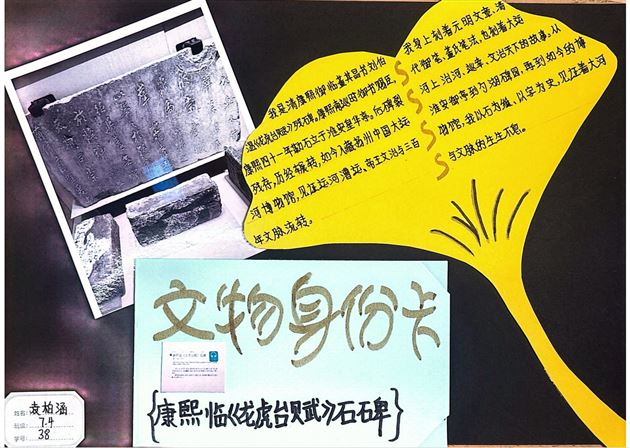 我是清康熙御临董其昌书刘伯
温《龙虎台赋》残石碑。康熙南巡时御书赐臣
康熙四十一年勒石立于淮安皇华亭。后碑裂
残存,历经辗转,如今入藏苏州中国大运
河博物馆,见证运河漕运、帝王文治与三百
年文脉流转。
我身上刻着元明文豪、清
代御笔、董氏笔法,也刻着大运
河上治河、文治天下的故事。从
淮安御亭到勺湖碑园,再到如今的博
物馆,我以石为纸,以字为史,见证着大河
与文脉的生生不息。
文物身份卡
{康熙临《龙虎台赋》石碑}
姓名:袁柏涵
班级:7.4
学号:38